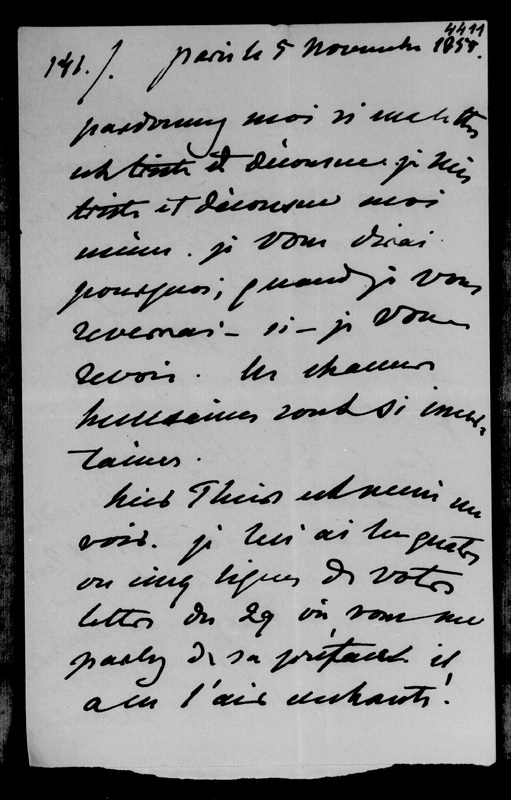 4411
141. /. paris le 5 Novembre 1855.
pardonnez moi si ma lettre
est triste et décousue. je suis
triste et décousue moi
même. je vous dirai
pourquoi, quand je vous
reverrai - si - je vous
revois. les chances
humaines sont si incer-
taines.
hier Thiers est venu me
voir. je lui ai lu quatre
ou cinq lignes de votre
lettre du 29 où vous me
parlez de sa préface. il
a eu l'air enchanté!